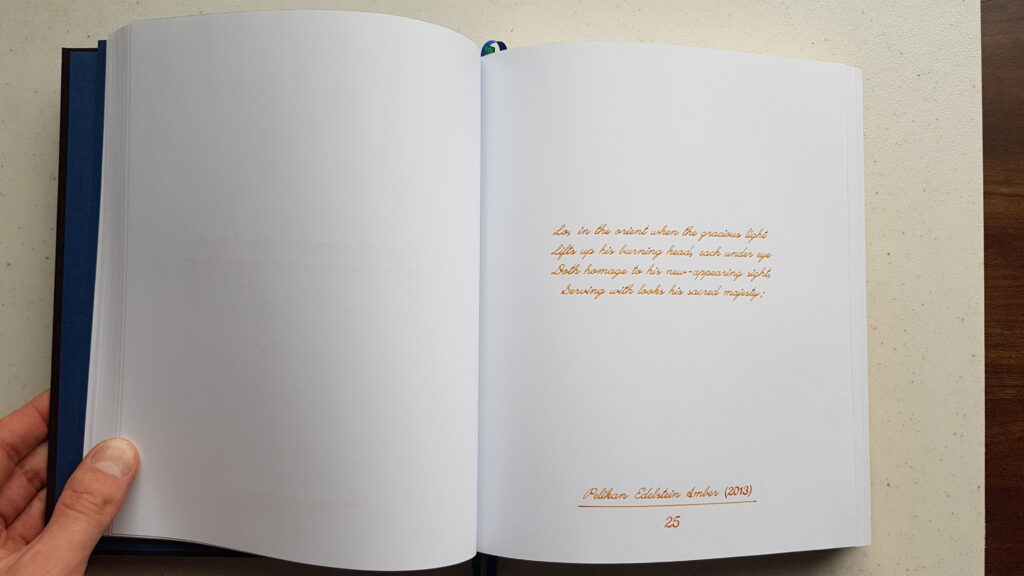 Lo, in the orient when the gracious light
Lifts up his burning head, each under eye
Doth homage to his new-appearing sight,
Serving with looks his sacred majesty;
Pelikan Edelstein Amber (2013)
25